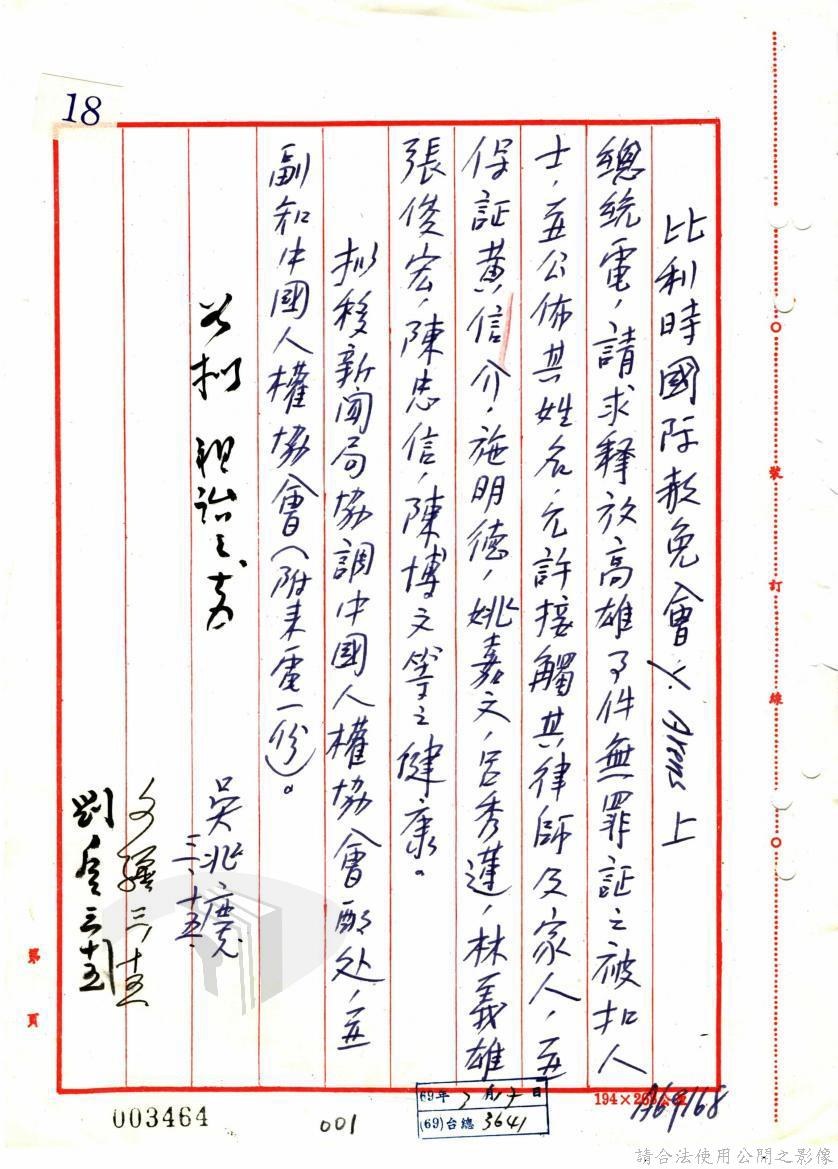 18
比利時國际赦免會 Y. Arens 上
總統電，請求释放高雄事件無罪証之被扣人
士，並公佈其姓名，允許接觸其律師及家人，並
保証黃信介，施明德，姚嘉文，呂秀蓮，林義雄
張俊宏，陳忠信，陳博文等之健康。
拟移新聞局協調中國人權協會酌处，並
副知中國人權協會（附来電一份）。
吳兆
三、十五、
三、十五
劉 三、十五
裝訂線
第 頁
194×268公厘
A69168
69年 3月 日
(69)台總 3641
003464
001
請合法使用公開之影像